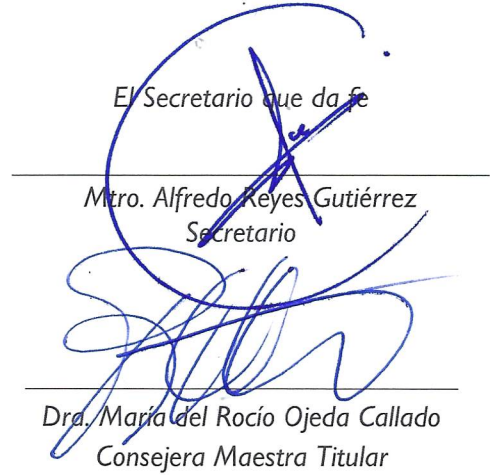 El Secretario que da fe
Mtro. Alfredo Reyes Gutiérrez
Secretario
Dra. María del Rocío Ojeda Callado
Consejera Maestra Titular